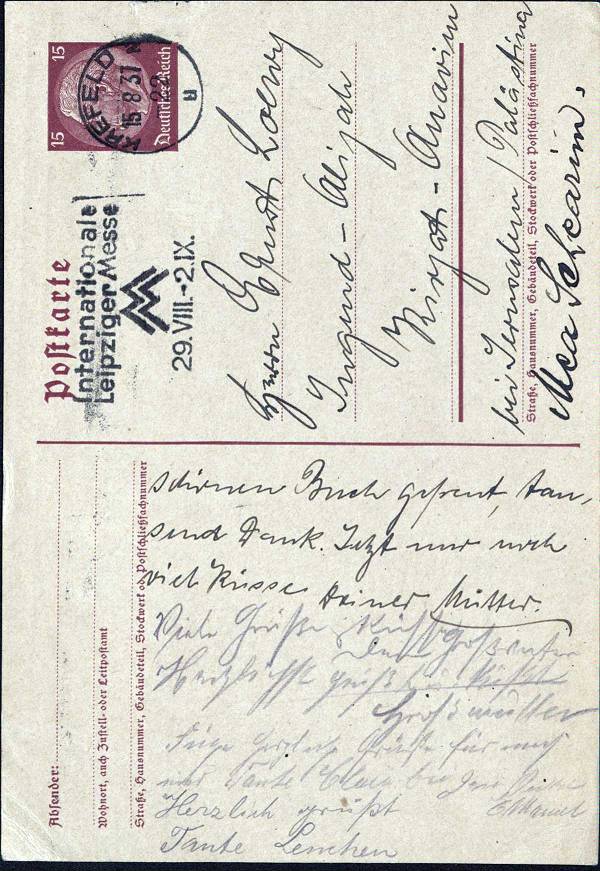 Postkarte
15 15
Deutsches Reich
KREFELD
15.8.37
Internationale
Leipziger Messe
29.VIII.-2.IX.
Herrn Ernst Loewy
Jugend-Alijah
Kirjat-Anavim
bei Jerusalem / Palästina
Straße, Hausnummer, Gebäudeteil, Stockwerk oder Postschließfachnummer
Mea Schearim.
Absender:
Wohnort, auch Zustell- oder Leitpostamt
Straße, Hausnummer, Gebäudeteil, Stockwerk od. Postschließfachnummer
schönen Buch gefreut, tau-
send Dank. Jetzt nur noch
viel Küsse Deiner Mutter.
Viele Grüße
Dein Großvater
Herzlichst
Großmutter
herzliche Grüße für
Tante
Herzlich grüßt
Tante Lenchen